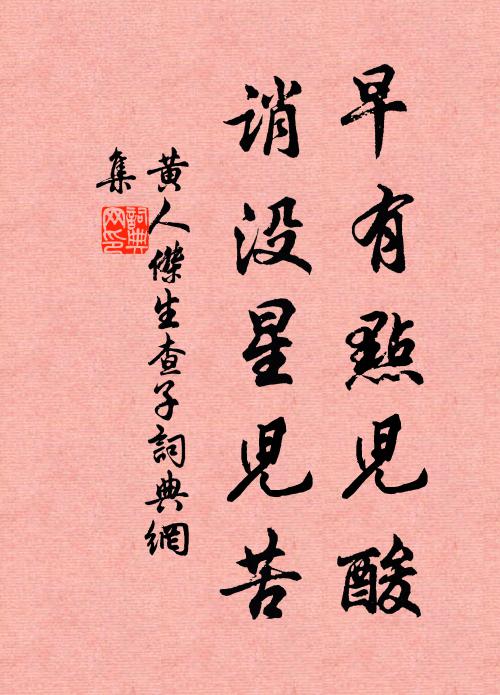 早有點兒酸
誚没星兒苦
黄人傑生查子詞典網
集
詞典網印